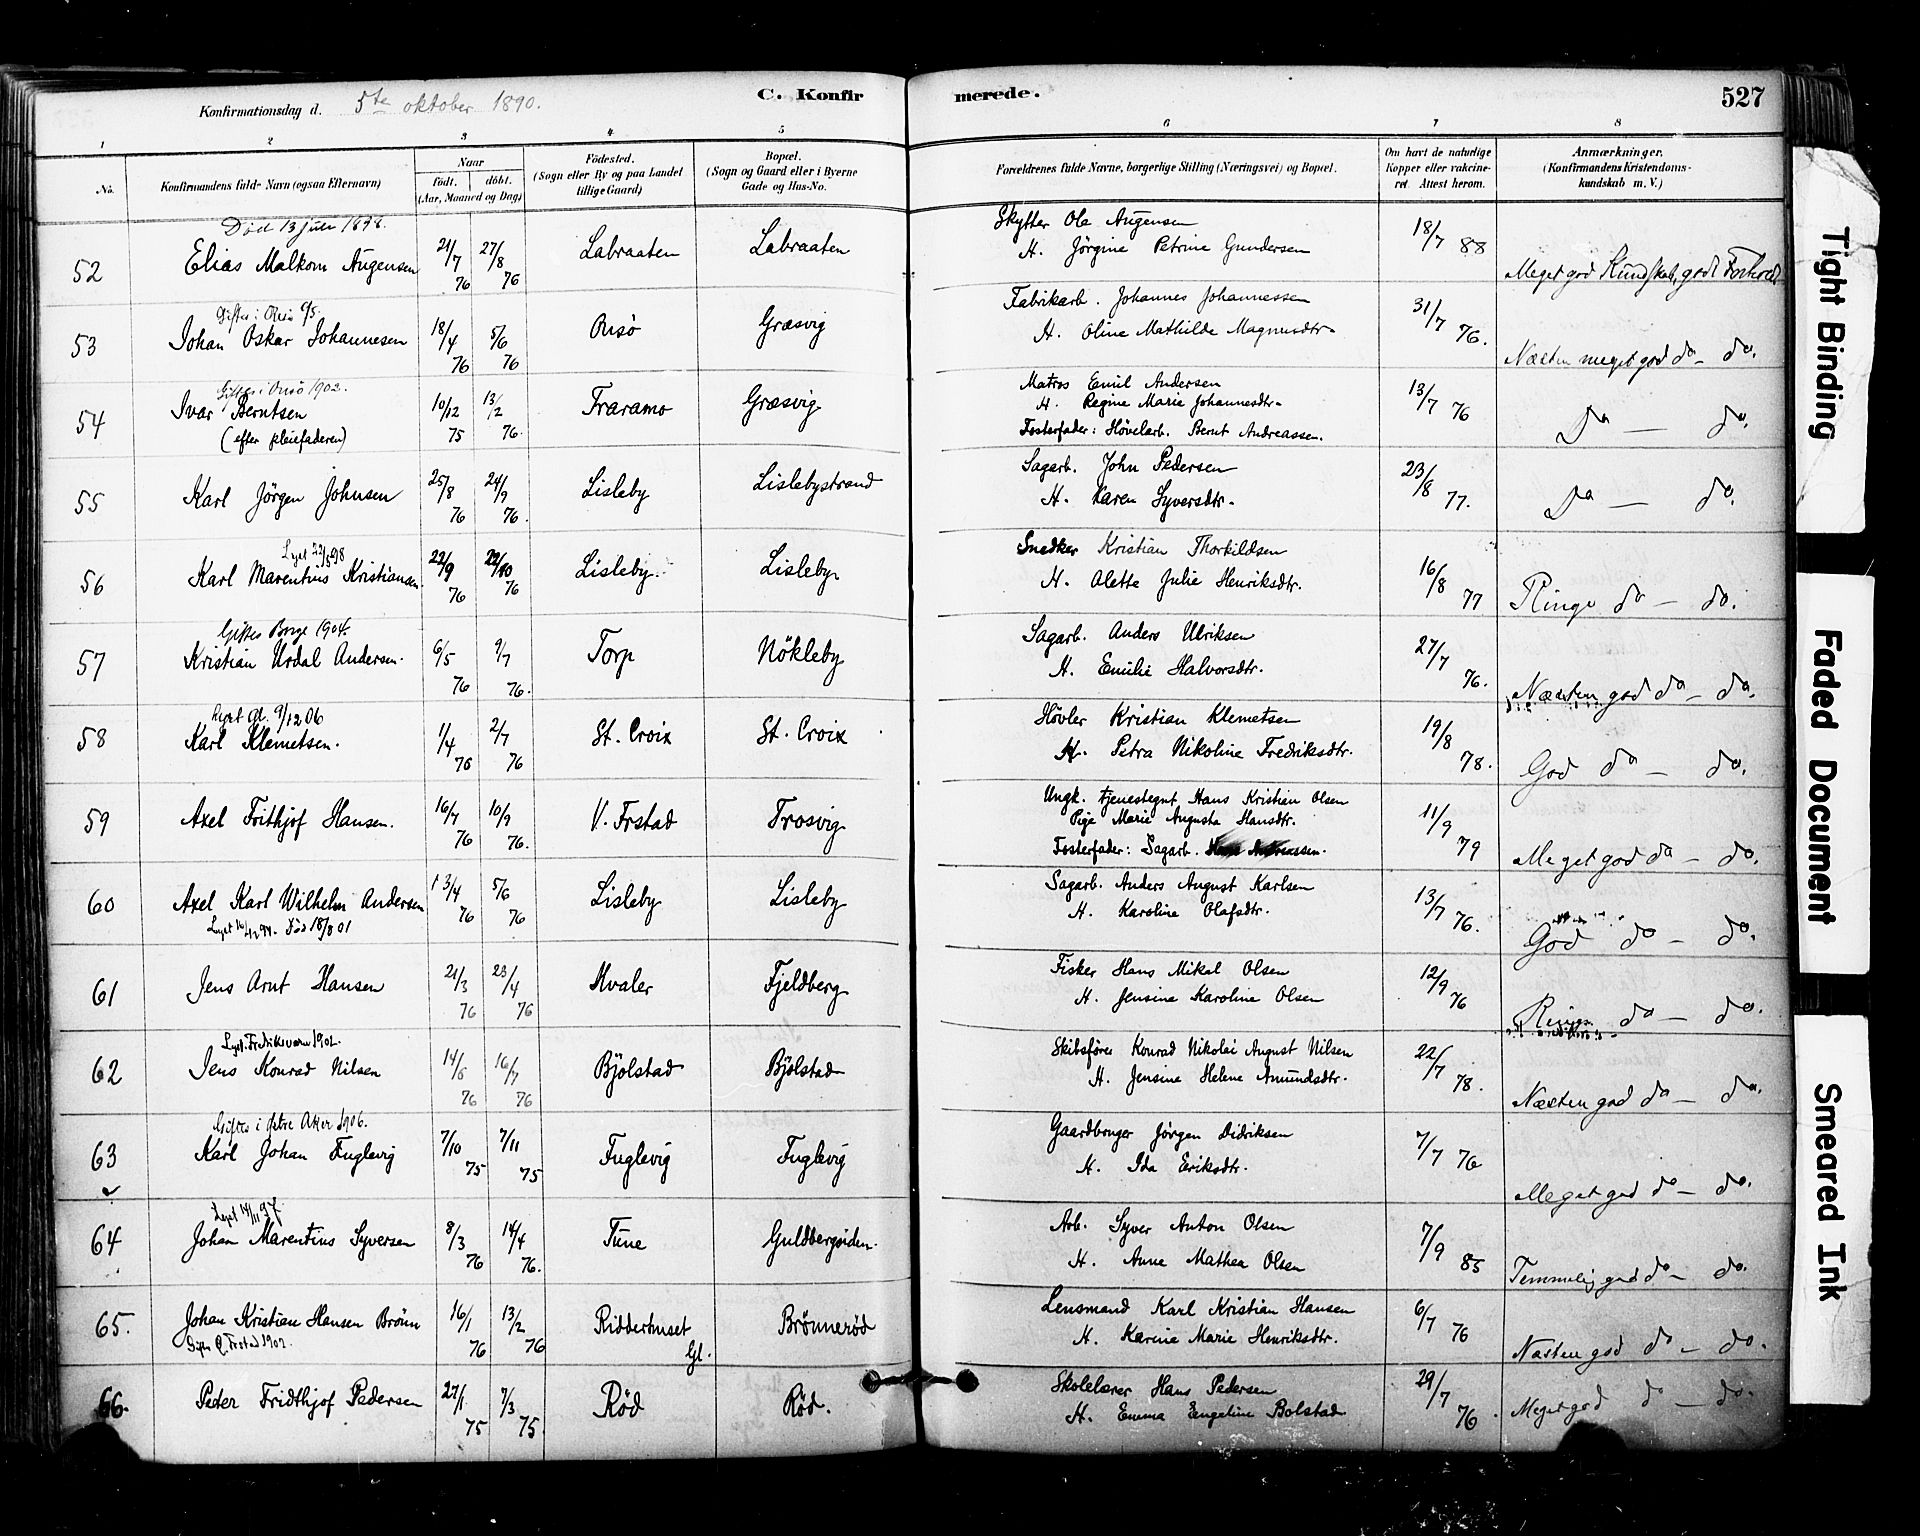 C. Konfirmerede.
527
Konfirmationsdag d. 5te oktober 1890.
1 2 3 4 5 6 7 8
No. Konfirmandens fulde Navn (ogsaa Efternavn) Naar födt. döbt. (Aar, Maaned og Dag) Födested. (Sogn eller By og paa Landet tillige Gaard) Bopæl. (Sogn og Gaard eller i Byerne Gade og Hus-No. Forældrenes fulde Navne, borgerlige Stilling (Næringsvei) og Bopæl. Om havt de naturlige Kopper eller vakcineret. Attest herom. Anmærkninger. (Konfirmandens Kristendomskundskab m. V.)
Död 13 juli
52 Elias Malkom Augensen 21/7 76 27/8 76 Labraaten Labraaten Skytter Ole Augensen 18/7 88 Meget god Kundskab, godt Forhold
H. Jörgine Petrine Gundersen
Giftes i Onsö
53 Johan Oskar Johannesen 18/4 76 5/6 76 Onsö Græsvig Fabrikarb. Johannes Johannessen 31/7 76. Næsten meget god do – do.
H. Oline Mathilde Magnusdtr.
Giftes i Onsö 1902.
54 Ivar Berntsen 10/12 75 13/2 76. Fraramo Græsvig Matros Emil Andersen 13/7 76 Do — do.
(efter pleiefaderen) H. Regine Marie Johannesdtr.
Fosterfader: Hövelarb. Bernt Andreassen.
55 Karl Jörgen Johnsen 25/8 76 24/9 76. Lisleby Lislebystrand Sagarb. John Pedersen 23/8 77. Do — do.
H. Karen Syversdtr.
56 Karl Marentius Kristiansen 22/9 76 22/10 76 Lisleby Lisleby Snedker Kristian Thorkildsen 16/8 77 Ringe do – do.
H. Alette Julie Henriksdtr.
Giftes Borge 1904.
57 Kristian Urdal Andersen. 6/5 76 9/7 76. Torp Nökleby Sagarb. Anders Ulriksen 27/7 76. Næsten god do – do.
H. Emilie Halvorsdtr.
9/12 06
58 Karl Klemetsen. 1/4 76 2/7 76 St. Croix St. Croix Hövler Kristian Klemetsen 19/8 78. God do – do.
H. Petra Nikoline Fredriksdtr.
59 Axel Frithjof Hansen. 16/7 76 10/9 76. V. Frstad Trosvig Ungk. tjenestegut Hans Kristian Olsen 11/9 79 Meget god do – do.
Pige Marie Augusta Hansdtr.
Fosterfader: Sagarb.
60 Axel Karl Wilhelm Andersen 13/4 76 5/6 76 Lisleby Lisleby Sagarb. Anders August Karlsen 13/7 76. God do – do.
Död 18/8 01 H. Karoline Olafsdtr.
61 Jens Arnt Hansen 21/3 76 23/4 76 Hvaler Fjeldberg Fisker Hans Mikal Olsen 12/9 76 Ringe do – do.
H. Jensine Karoline Olsen
Lyst Fredriksværn 1902.
62 Jens Konrad Nilsen 14/6 76 16/7 76 Bjölstad Bjölstad Skibsförer Konrad Nikolai August Nilsen 22/7 78. Næsten god do – do.
H. Jensine Helene Amundsdtr.
Giftes i östre Aker 1906.
63 Karl Johan Fuglevig 7/10 75 7/11 75 Fuglevig Fuglevig Gaardbruger Jörgen Didriksen 7/7 76 Meget god do – do.
H. Ida Eriksdtr.
Lyst 14/11 97
64 Johan Marentius Syversen 8/3 76 14/4 76. Tune Guldbergsiden. Arb. Syver Anton Olsen 7/9 85 Temmelig god do – do.
H. Anne Mathea Olsen
65. Johan Kristian Hansen Brönn 16/1 76 13/2 76 Ridderhuset Gl. Brönneröd Lensmand Karl Kristian Hansen 6/7 76 Næsten god do – do.
Gift Frstad 1902. H. Karine Marie Henriksdtr.
66. Peter Fridthjof Pedersen 27/1 75 7/3 75. Röd Röd. Skolelærer Hans Pedersen 29/7 76. Meget god do – do.
H. Emma Engeline Bolstad
Tight Binding
Faded Document
Smeared Ink